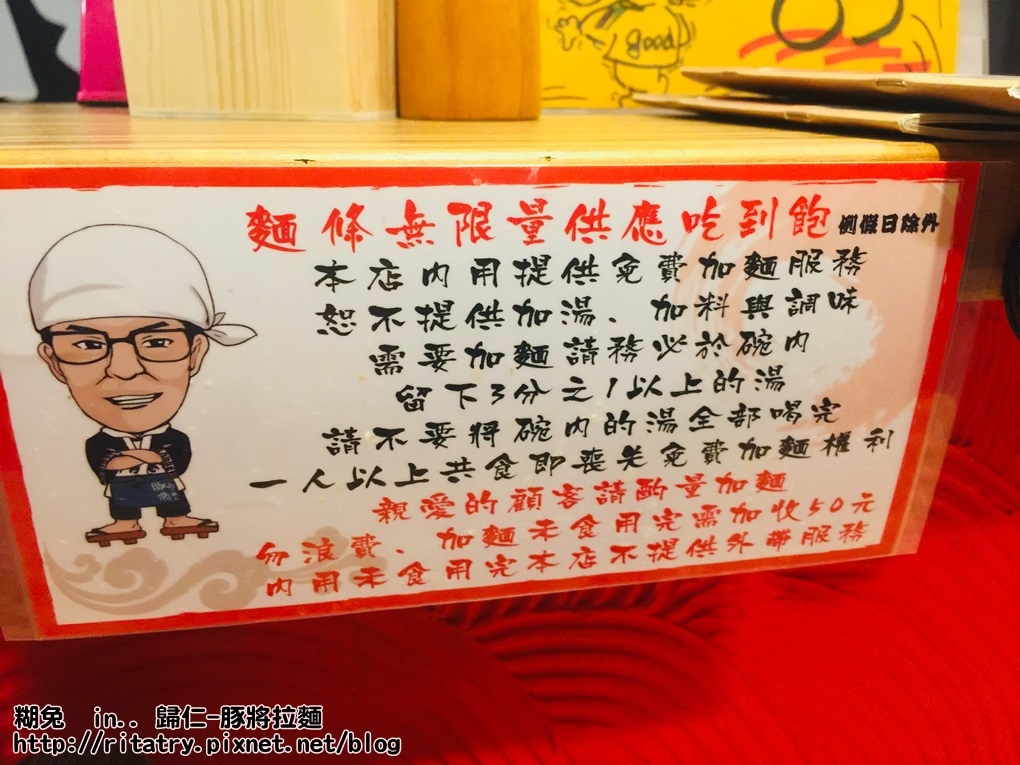 good
麵條無限量供應吃到飽 例假日除外
本店內用提供免費加麵服務
恕不提供加湯、加料與調味
需要加麵請務必於碗內
留下3分之1以上的湯
請不要將碗內的湯全部喝完
一人以上共食即喪失免費加麵權利
親愛的顧客請酌量加麵
勿浪費、加麵未食用完需加收50元
內用未食用完本店不提供外帶服務
糊兔 in.. 歸仁-豚將拉麵
http://ritatry.pixnet.net/blog